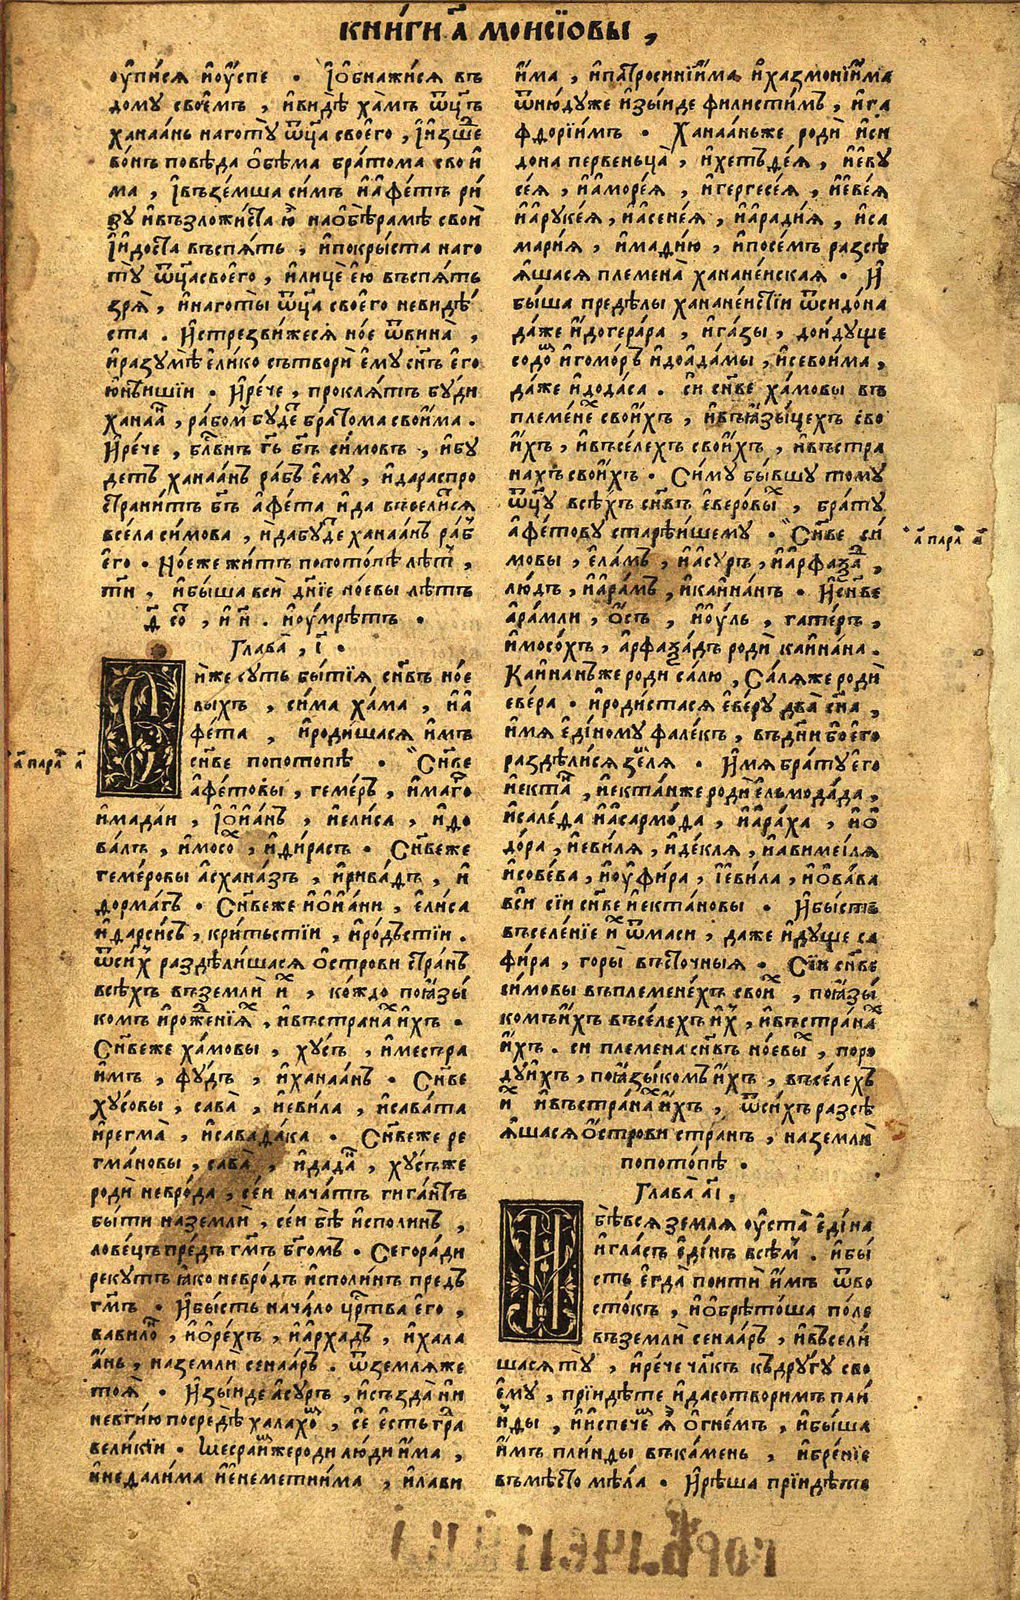 КНИ́ГИ а҃ МОИСІОВЫ ,
оупи́сѧ ноу́спе · І҆ѡбнажи́сѧ въ
дому свое́мъ , и҆ви́дѣ ха́мъ ѿц҃ъ
ханаа́нь наготу̀ ѿц҃а своего̀ , І҆и҆зше
во́нъ повѣ́да ѻ҆бѣ́ма бра́тома свои҆
ма , І҆въземша си́мъ и҆а҆фе́тъ ри́
зу и҆възложи́ста ю҆̀ наѻбѣ́рамѣ свои҆
І҆и҆до́ста въспѧ́ть , и҆покры́ста наго
ту̀ ѿц҃а своего̀ , и҆лицѐ е҆ю въспѧ́ть
зрѧ̀ , и҆наготы̀ ѿц҃а своего̀ невидѣ́
ста . И҆стрезви́жесѧ но́е ѿвина̀ ,
и҆разумѣ̀ е҆ли́ко сътворѝ е҆му̀ сн҃ъ е҆го
юнѣ́ишіи · И҆ре́че , проклѧ́тъ бу́ди
ханаа́н , ра́бом бу́де бра́тома свои҆ма .
И҆ре́че , бл҃внъ г҃ь б҃ъ си́мовъ , и҆бу
детъ ханаа́нъ ра́бъ е҆му̀ , и҆дараспро
страни́тъ б҃ъ а҆фе́та и҆да въсели́сѧ
всела̀ си́мова , и҆дабу́де ханаа́нъ ра́б
е҆го · Но́еже жи́тъ попото́пѣ лѣ́т ,
т҃н , и҆бы́ша всѝ дн҃їе но́евы лѣ́тъ
҂д҃ со , и҆ н҃ . и҆оумрѣ́тъ ·
Глава̀ , і҃ ·
и҆́же суть бытїѧ̀ сн҃въ но́е
выхъ , си́ма ха́ма , и҆а҆
фе́та , и҆роди́шасѧ и҆мъ
сн҃ве попото́пѣ · Сн҃ве
а҆фе́товы , гаме́ръ , и҆маго
и҆мада́и , І҆ѻи҆а́нъ , и҆ели́са , и҆ дѳ
ва́лъ , и҆мосо , и҆ди́расъ · Сн҃веже
геме́ровы а҆схана́зъ , и҆рива́дъ , и҆
дорма́гъ · Сн҃веже и҆ѻи҆а́ни , е҆ли́са
и҆дарси́съ , кри́тьстіи , и҆ро́дъстіи .
ѿси́х раздѣли́шасѧ ѻ҆́строви стра́нъ
всѣ́хъ въземлѝ и҆х , ко́ждо поꙗ҆зы́
комъ и҆роже́нїѧ , и҆въстрана и҆хъ ·
Сн҃веже ха́мовы , ху́съ , и҆месера
и҆мъ , фу́дъ , и҆ханаа́нъ · Сн҃ве
ху́совы , сава̀ , и҆еви́ла , и҆сава́та
и҆регма̀ , и҆савада́ка · Сн҃веже ре
гма́новы , сава̀ , и҆дада̀ , ху́съже
родѝ невро́да , се́и нача́тъ гига́нтъ
бы́ти наземлѝ , се́и бѣ̀ и҆споли́нъ ,
лове́цъ пре́дъ г҃мъ б҃гомъ · Сегора́ди
реку́тъ ꙗ҆́ко невро́дъ и҆споли́нъ пре́дъ
г҃мъ · И҆бы́сть нача́ло цр҃тва е҆го̀ ,
вавило , и҆ѻре́хъ , и҆а҆рха́дъ , и҆хала
а҆́нь , наземлѝ сенаа́ръ . ѿземлѧ́же
тоѧ̀ · И҆зы́иде а҆су́ръ , и҆създа̀ ни
невгі́ю посредѣ̀ халахо , сѐ е҆сть гра
вели́кіи · ме́сраи҆мжероди лю́ди и҆ма ,
и҆недали́ма и҆е҆неметни́има , и҆лави
и҆́ма , и҆патросині́има , и҆хазмоні́има
ѿню́дуже и҆зы́иде филисти́мъ , и҆га
фдорїи́мъ · Ханаа́ньже родѝ и҆си
до́на первеньца̀ , и҆хетъде́ѧ , и҆е҆ву
се́ѧ , и҆а҆море́ѧ , и҆гергесе́ѧ , и҆е҆ве́ѧ
и҆а҆руке́ѧ , и҆а҆сене́ѧ , и҆а҆ради́ѧ , и҆са
мари́ѧ , и҆мади́ю , и҆посе́мъ разсѣ
ѧ҆шасѧ племена̀ ханане́йскаѧ · И҆
бы́ша предѣ́лы ханане́истіи ѿсидо́на
да́же и҆догера́ра , и҆га́зы , дои҆ду́ще
содо и҆гомо́ръ и҆доа҆да́мы , и҆севои҆ма ,
да́же и҆дода́са . си сн҃ве ха́мовы въ
племе́не свои́хъ , и҆въꙗ҆зы́цехъ е҆во
и҆хъ , и҆въсе́лехъ свои́хъ , и҆въстра
нахъ свои́хъ · Си́му бы́вшу тому
ѿц҃у всѣ́хъ сн҃въ е҆веро́вы , бра́ту
а҆фе́тову старѣ́ишему · Сн҃ве си́
мовы , е҆ла́мъ , и҆а҆су́ръ , и҆а҆рфаѯа ,
лю́дъ , и҆а҆ра́мъ , и҆каина́нъ · И҆сн҃ве
а҆ра́мли , ѻ҆съ , и҆оу́ль , гате́ръ ,
и҆мосо́хъ , а҆рфаѯа́дъ родѝ каина́на .
Каина́нъже роди са́лю , Са́лѧже родѝ
е҆ве́ра · и҆роди́стасѧ е҆ве́ру два̀ сн҃а ,
и҆́мѧ е҆ди́ному фале́къ , въдн҃и бо его
раздѣли́сѧ зе́лѧ · И҆́мѧ бра́ту его
и҆екта , и҆екта́нже родѝ е҆льмода́да ,
и҆сале́да и҆а҆сармо́да , и҆а҆ра́ха , и҆ѻ
до́ра , и҆еви́лѧ , и҆де́клѧ , и҆а҆вимеі́лѧ
и҆сове́ва , и҆оуфи́ра , і҆еви́ла , и҆ѻва́ва
вси сїи сн҃ве и҆екта́новы · И҆бы́сть
въселе́ніе и҆х ѿмаси , даже и҆ду́ще са
фи́ра , го́ры въсто́чныѧ · Сі́и сн҃ве
си́мовы въплемене́хъ свои , поꙗ҆зы́
комъи́хъ въсе́лехъ и҆х , и҆въстра́на
и҆́хъ . си племена̀ сн҃въ но́евы , поро
дуи́хъ , поꙗ҆зы́комъ и́хъ , въсе́лехъ
и҆х и҆въстра́на и҆хъ , ѿси́хъ разсѣ
ѧ҆шасѧ ѻ҆́строви стра́нъ , наземлѝ
попото́пѣ ·
Глава̀ а҃і ,
бѣ̀всѧ землѧ̀ оу҆ста̀ е҆ди́на
и҆гла́съ е҆ди́нъ всѣ́м . и҆бы́
сть е҆гда̀ поитѝ и҆́мъ ѿво
сто́къ , и҆ѻбрѣто́ша по́ле
въземлѝ сенаа́ръ , и҆въсели́
шасѧ ту̀ , и҆рече чл҃къ къдру́гу сво
е҆му̀ , прїидѣ́те и҆дасотвори́мъ пли́
н҆ды , и҆и҆спече ѧ҆̀ ѻ҆гне́мъ , и҆бы́ша
и҆́мъ пли́нды въка́мень , и҆бре́ніе
въмѣ́сто мѣ́ла · И҆рѣ́ша прїидѣ́те
а҃ пара а҃
а҃ пара в҃